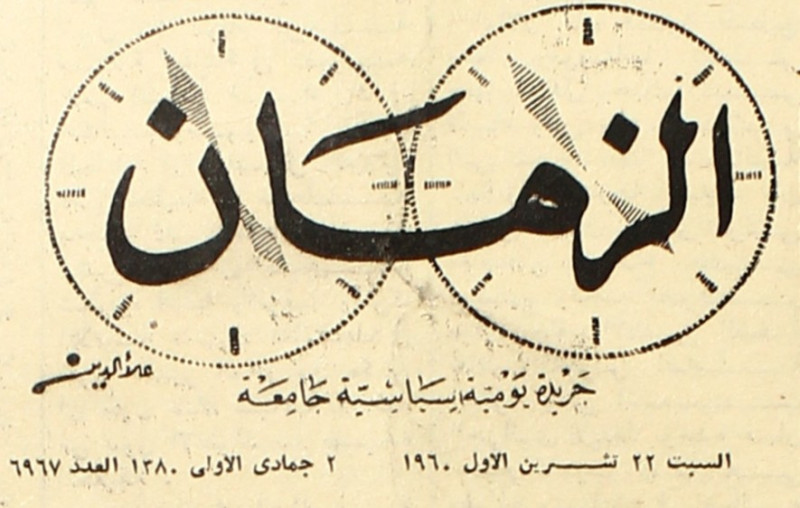 الزمان
علاء الدين
جَرِيْدَة يَوْمِيَة سِيَاسِيَّة جَامِعَة
السبت ٢٢ تشرين الاول ١٩٦٠ ٢ جمادى الاولى ١٣٨٠ العدد ٦٩٦٧